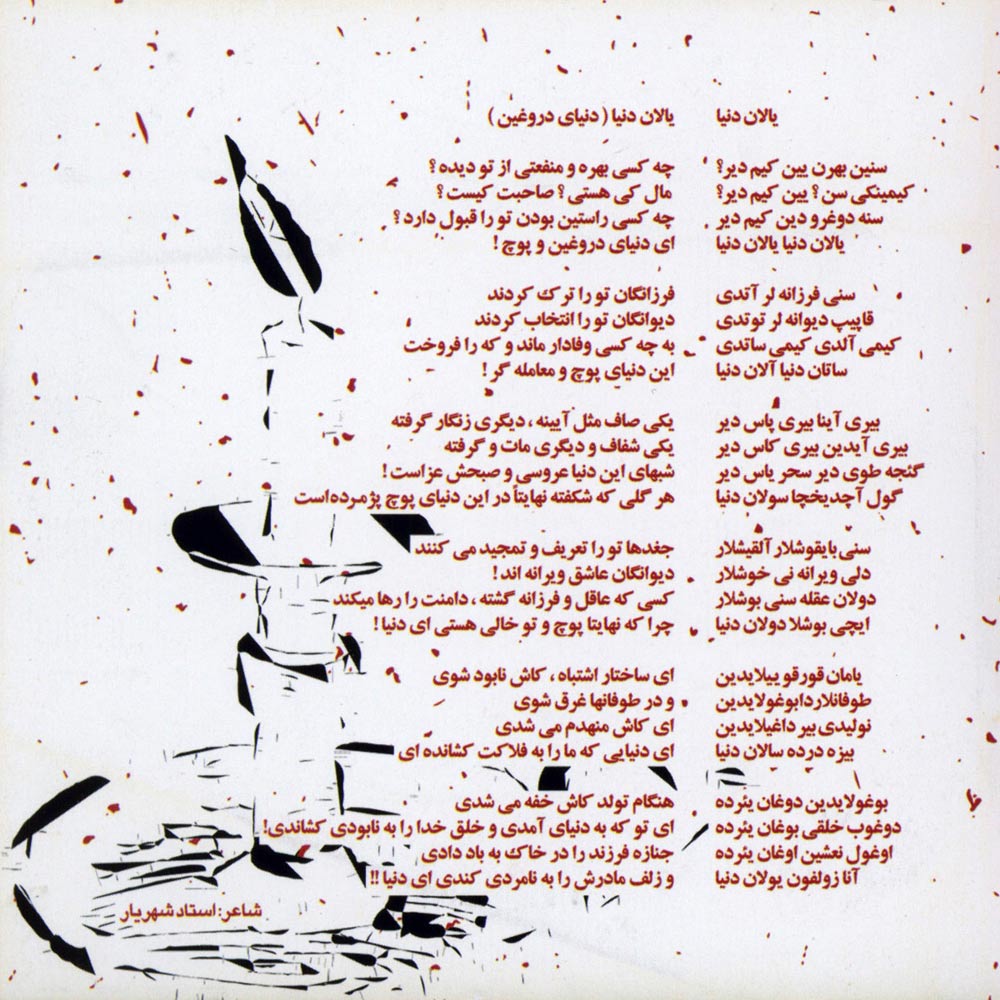 یالان دنیا
سنین بهرن یین کیم دیر؟
کیمینکی سن؟ یین کیم دیر؟
سنه دوغرو دین کیم دیر
یالان دنیا یالان دنیا
سنی فرزانه لر آتدی
قاپیپ دیوانه لر توتدی
کیمی آلدی کیمی ساتدی
ساتان دنیا آلان دنیا
بیری آینا بیری پاس دیر
بیری آیدین بیری کاس دیر
گئجه طوی دیر سحر یاس دیر
گول آچدیخجا سولان دنیا
سنی بایقوشلار آلقیشلار
دلی ویرانه نی خوشلار
دولان عقله سنی بوشلار
ایچی بوشلا دولان دنیا
یامان قورقو ییلایدین
طوفانلاردا بوغولایدین
نولیدی بیر داغیلایدین
بیزه درده سالان دنیا
بوغولایدین دوغان یئرده
دوغوب خلقی بوغان یئرده
اوغول نعشین اوغان یئرده
آنا زولفون یولان دنیا
یالان دنیا ( دنیای دروغین )
چه کسی بهره و منفعتی از تو دیده ؟
مال کی هستی ؟ صاحبت کیست ؟
چه کسی راستین بودن تو را قبول دارد ؟
ای دنیای دروغین و پوچ !
فرزانگان تو را ترک کردند
دیوانگان تو را انتخاب کردند
به چه کسی وفادار ماند و که را فروخت
این دنیای پوچ و معامله گر !
یکی صاف مثل آیینه ، دیگری زنگار گرفته
یکی شفاف و دیگری مات و گرفته
شبهای این دنیا عروسی و صبحش عزاست !
هر گلی که شکفته نهایتاً در این دنیای پوچ پژمرده است
جغدها تو را تعریف و تمجید می کنند
دیوانگان عاشق ویرانه اند !
کسی که عاقل و فرزانه گشته ، دامنت را رها میکند
چرا که نهایتا پوچ و تو خالی هستی ای دنیا !
ای ساختار اشتباه ، کاش نابود شوی
و در طوفانها غرق شوی
ای کاش منهدم می شدی
ای دنیایی که ما را به فلاکت کشانده ای
هنگام تولد کاش خفه می شدی
ای تو که به دنیای آمدی و خلق خدا را به نابودی کشاندی!
جنازه فرزند را در خاک به باد دادی
و زلف مادرش را به نامردی کندی ای دنیا !!
شاعر: استاد شهریار